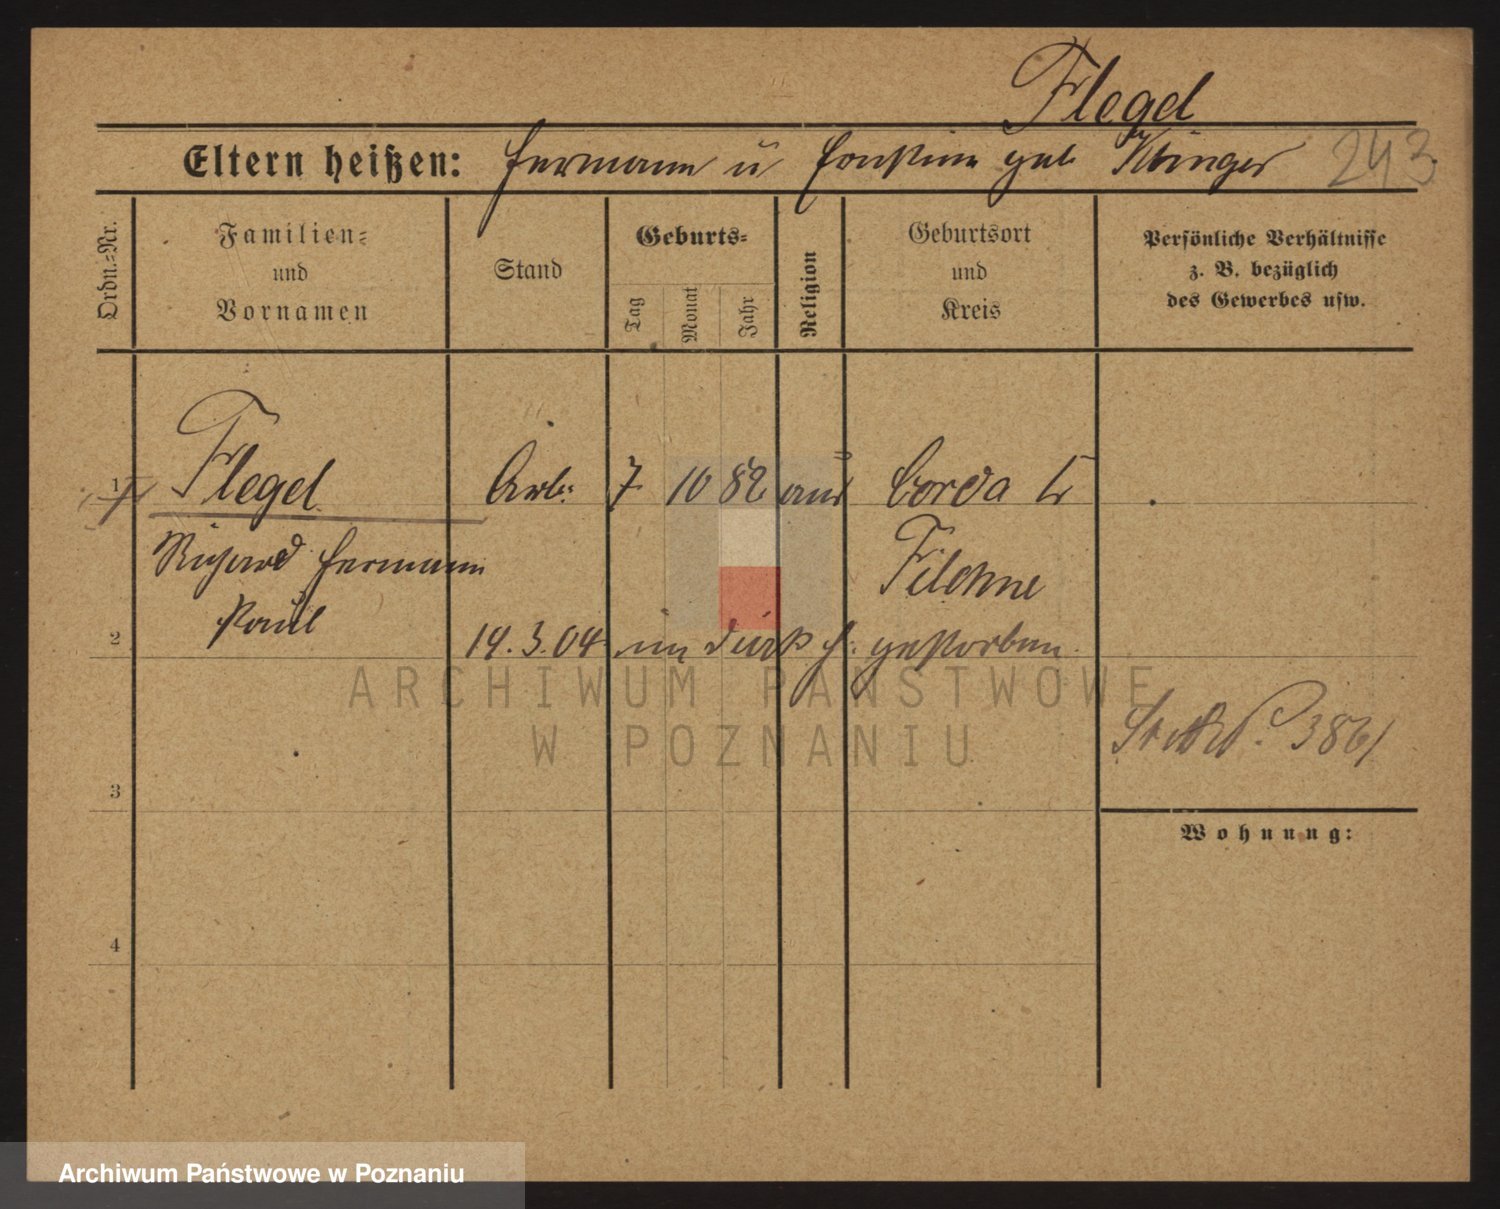 Flegel
Eltern heißen: Hermann u geb Klinger 243
Ordn.-Nr.
Familien-
und
Vornamen
Stand
Geburts-
Tag
Monat
Jahr
Religion
Geburtsort
und
Kreis
Persönliche Verhältnisse
z. B. bezüglich
des Gewerbes usw.
1 Flegel Arb. 7 10 82 Corda Kr
Richard Hermann Filehne
Paul
2 14.3.04 im gestorben
ARCHIWUM PAŃSTWOWE
W POZNANIU
3
Wohnung:
4
Archiwum Państwowe w Poznaniu